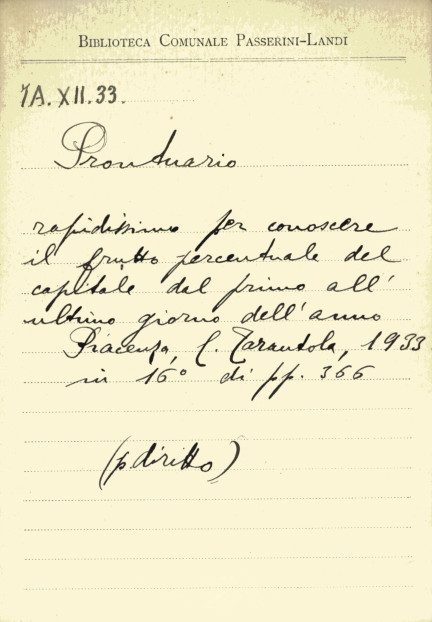 BIBLIOTECA COMUNALE PASSERINI-LANDI
7A.XII.33.
Prontuario
rapidissimo per conoscere
il frutto percentuale del
capitale dal primo all'
ultimo giorno dell'anno
Piacenza, C. Tarantola, 1933
in 16° di pp. 366
(p. diritto)